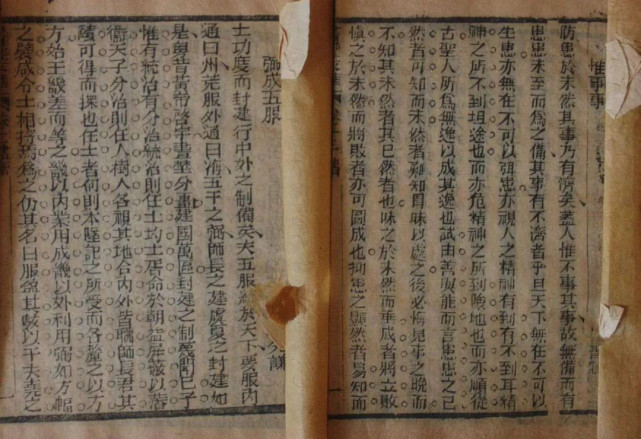 惟事事
防患於未然其事乃有濟矣蓋人惟不事其事故無備而有
患患未至而為之備其事有不濟者乎且天下無在不可以
生患亦無在不可以弭患亦視人之精神有到有不到耳精
神之所不到坦途也而亦危精神之所到險地也而亦順從
古聖人所為無逸以成其逸也試由善汝能而言患患之已
然者可知而未然者難知冒昧以處之後必悔見事之晚而
不知其未然者其已然者也昧之於未然而垂成者將立敗
慎之於未然而將敗者亦可圖成也抑患之顯然者易知而
弼成五服
土功度而封建行中外之制備矣夫五服於天下要服內
通曰州荒服外通曰海五千之弼師長之建虞夏之封建如
是與昔黃帝啓宇畫埜分建國萬區封建之制已予
惟有統治有分治統治則任土均土居命於朝以藩
衛天子分治則任人樹人各視其地合內外皆師長君其
賾可得而探也任土者何則本之所受而各之以方
方始王畿差而等之畿以內用成畿以外利用弼如方幅
之襞咸令土相為之仍其名曰服盈其數以千夫堯之